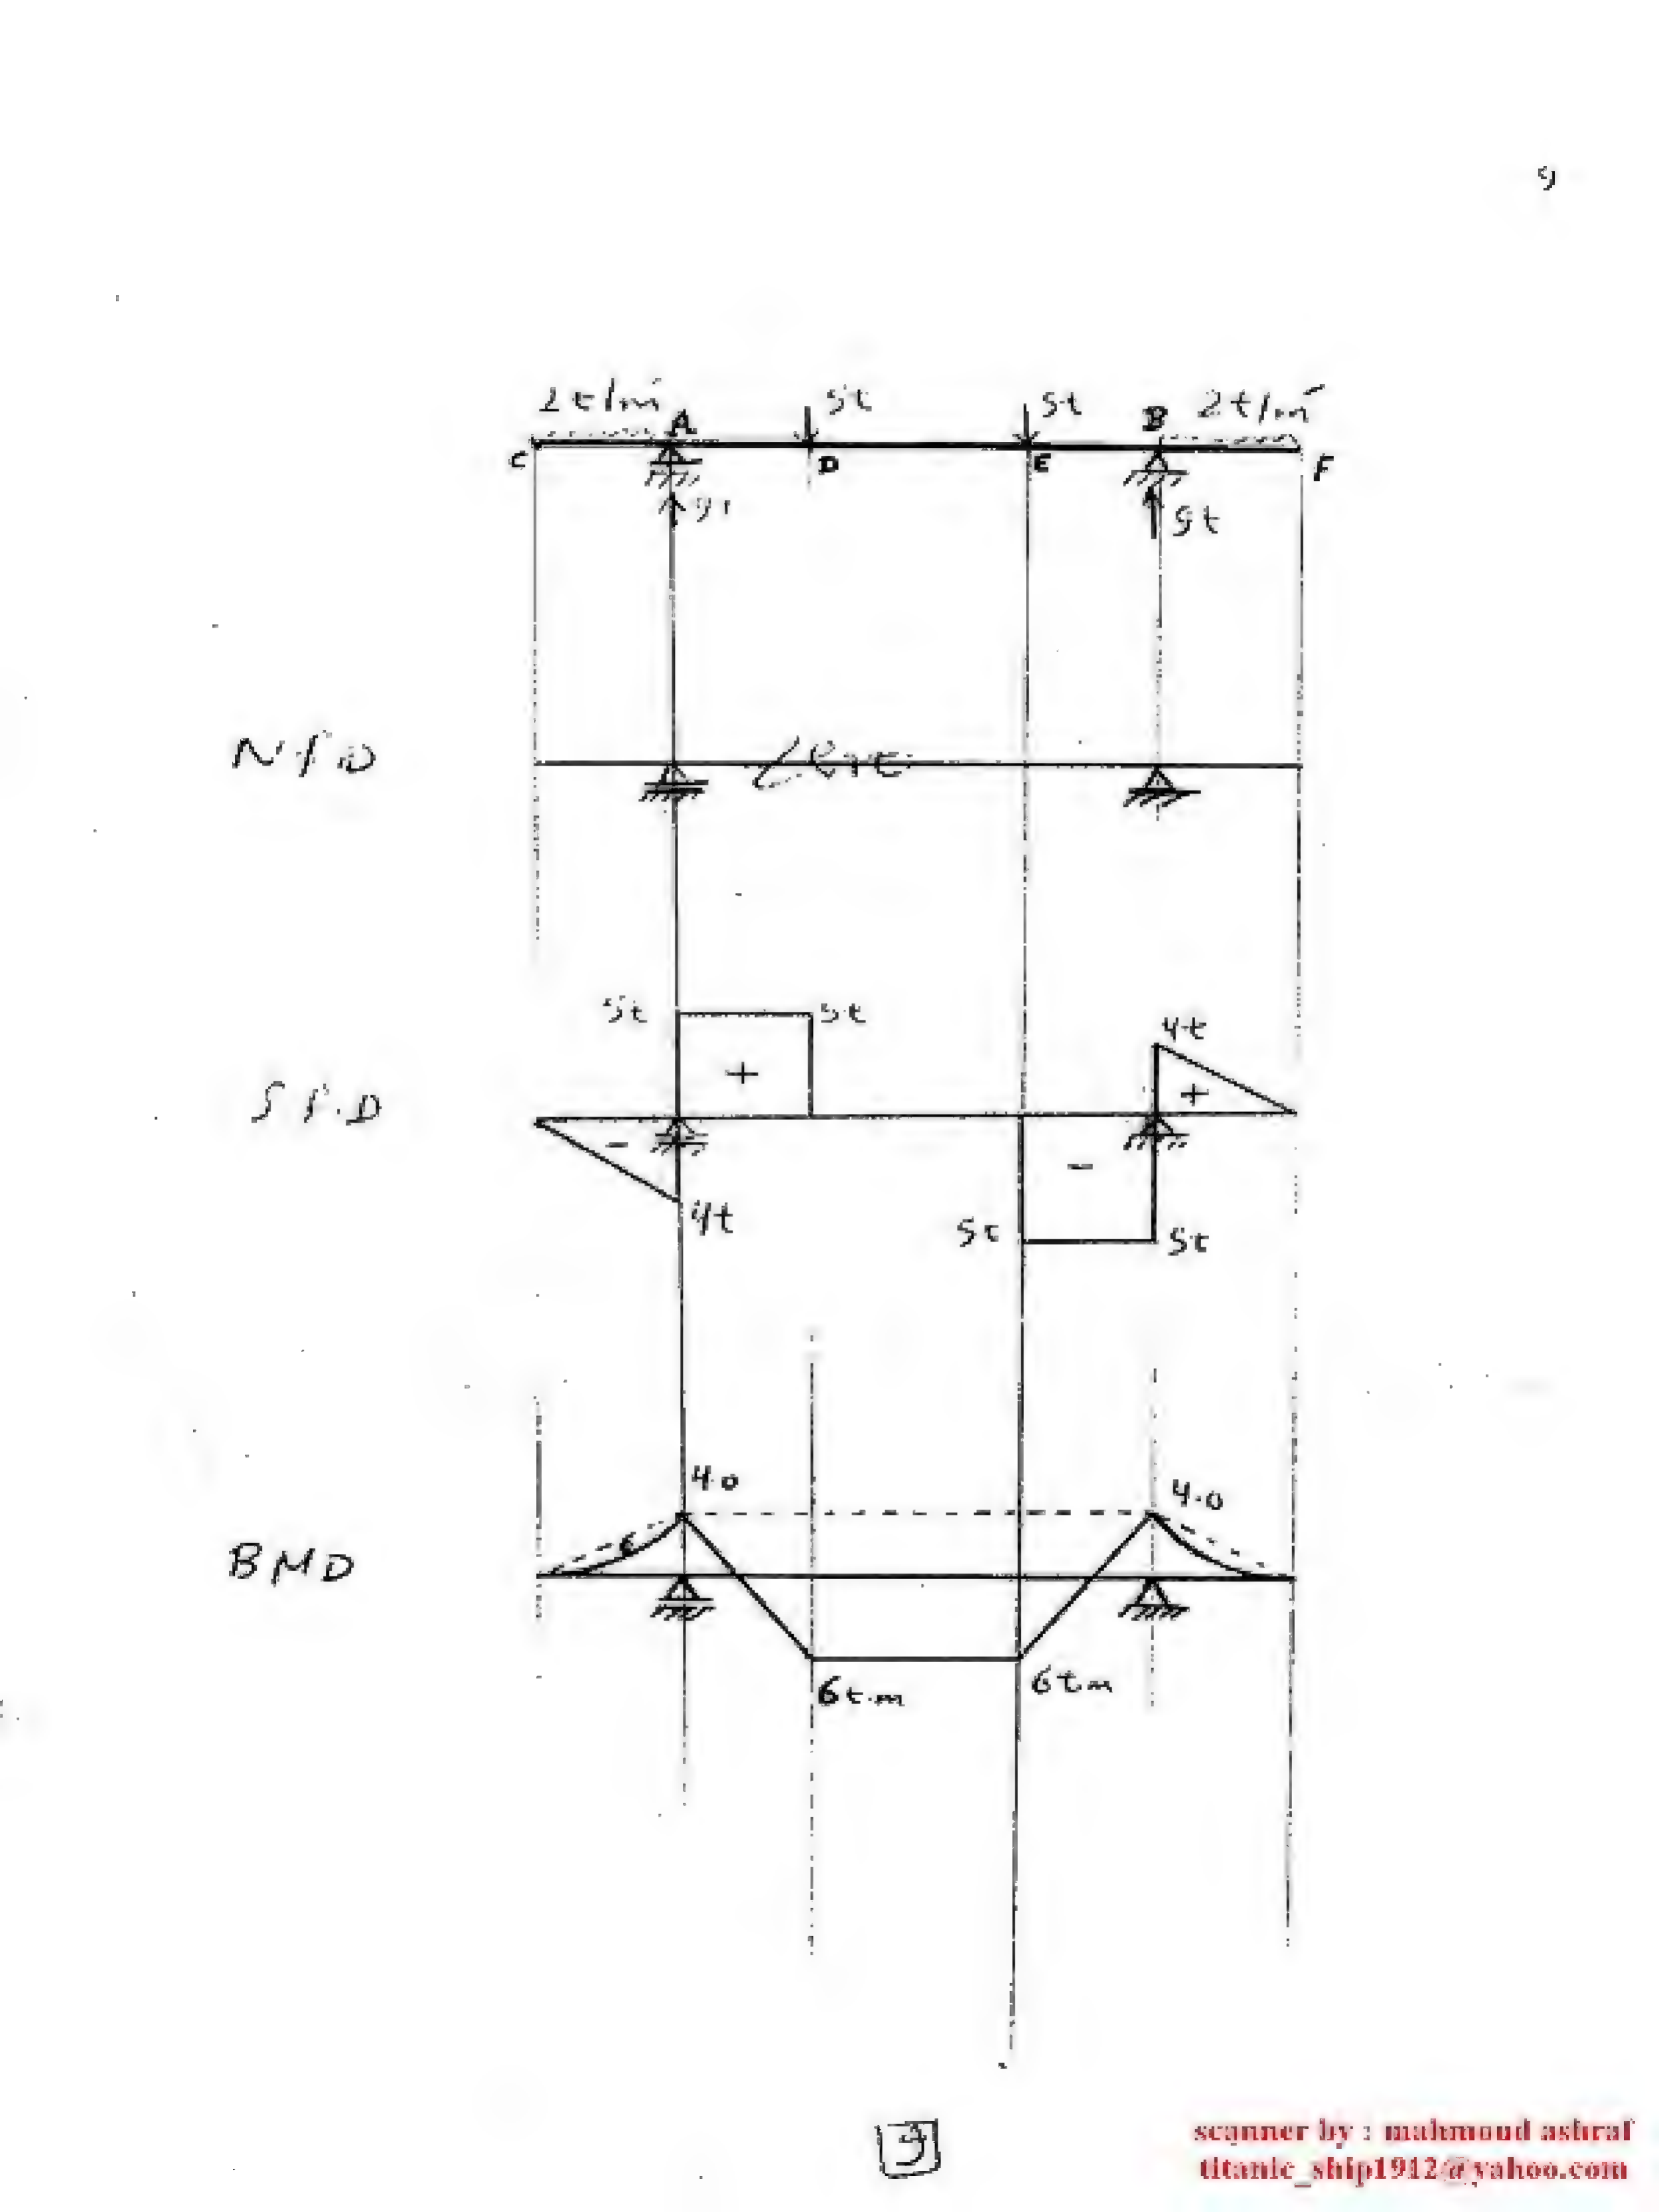 9
2t/m' A 5t 5t B 2t/m'
C D E F
9t 9t
N.F.D Zero
5t 5t 4t
+ +
S.F.D
- -
4t 5t 5t
4.0 4.0
BMD
6t.m 6t.m
3
scanner by : mahmoud ashraf
titanic_ship1912@yahoo.com